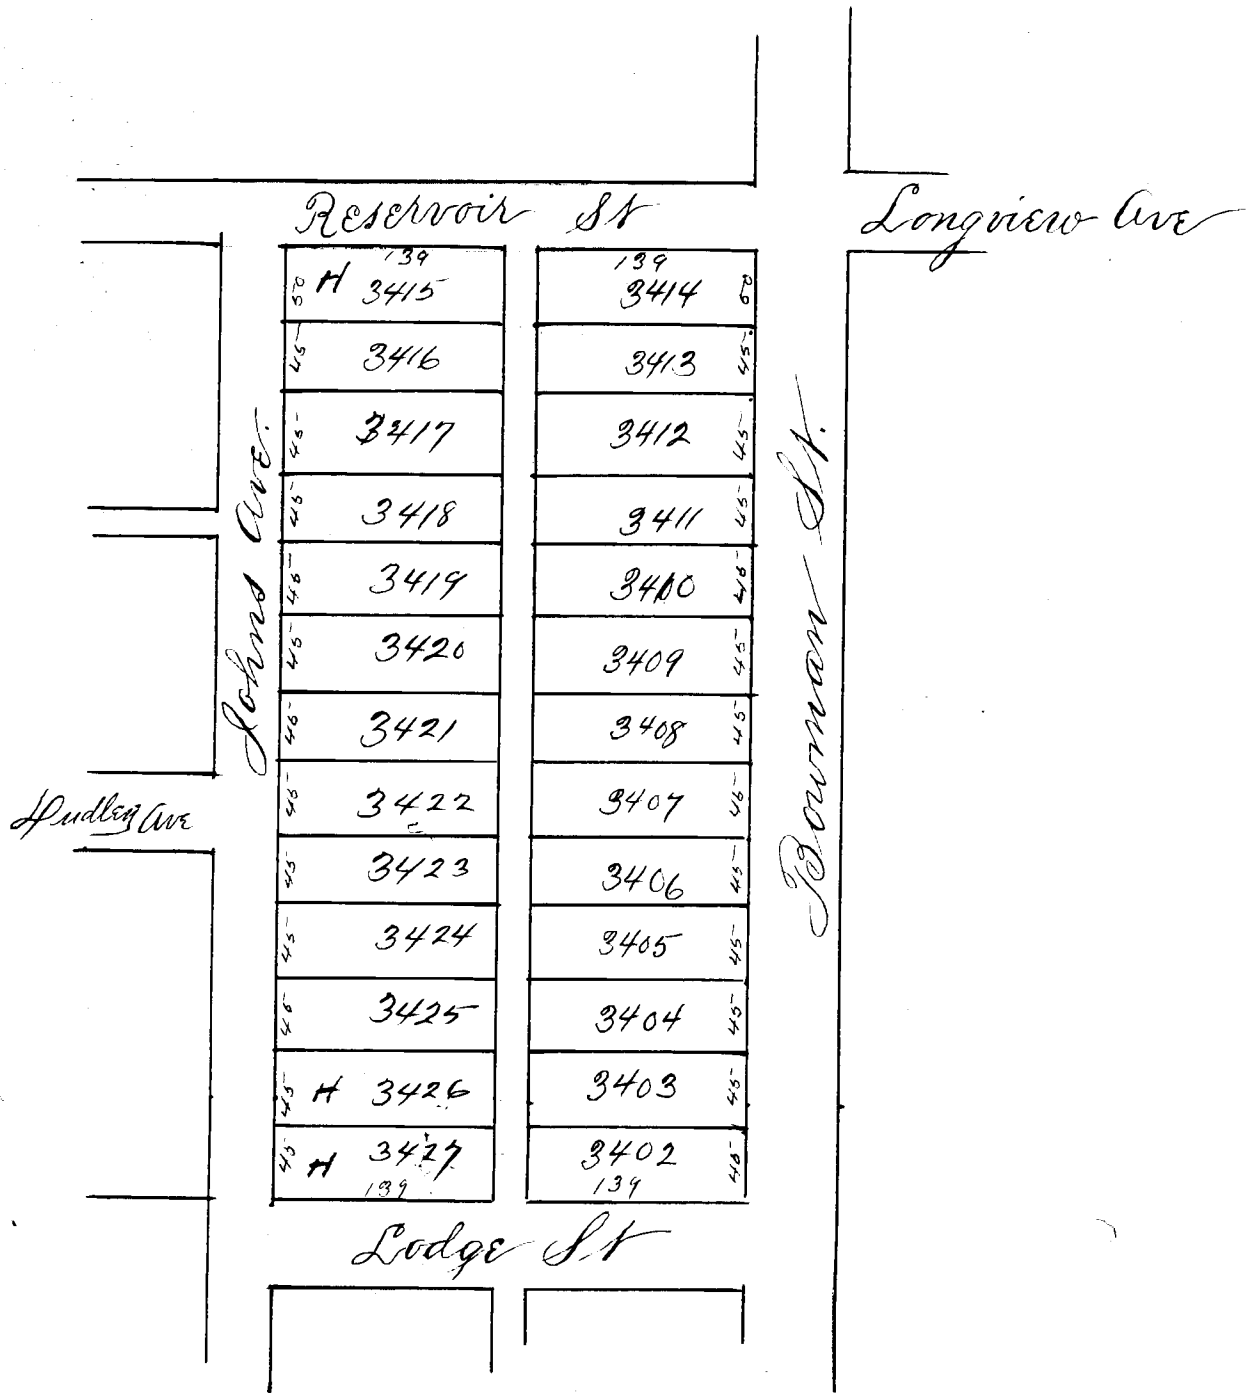 Reservoir St
Longview Ave
Johns Ave.
Bowman St.
Dudley Ave
139
50 H 3415
45 3416
45 3417
45 3418
45 3419
45 3420
45 3421
45 3422
45 3423
45 3424
45 3425
45 H 3426
45 H 3427
139
139
3414 50
3413 45
3412 45
3411 45
3410 45
3409 45
3408 45
3407 45
3406 45
3405 45
3404 45
3403 45
3402 45
139
Lodge St